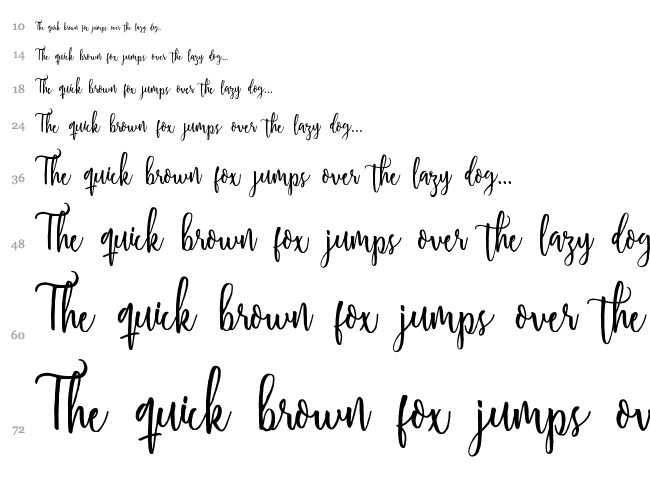 10 The quick brown fox jumps over the lazy dog...
14 The quick brown fox jumps over the lazy dog...
18 The quick brown fox jumps over the lazy dog...
24 The quick brown fox jumps over the lazy dog...
36 The quick brown fox jumps over the lazy dog...
48 The quick brown fox jumps over the lazy dog
60 The quick brown fox jumps over the
72 The quick brown fox jumps ov